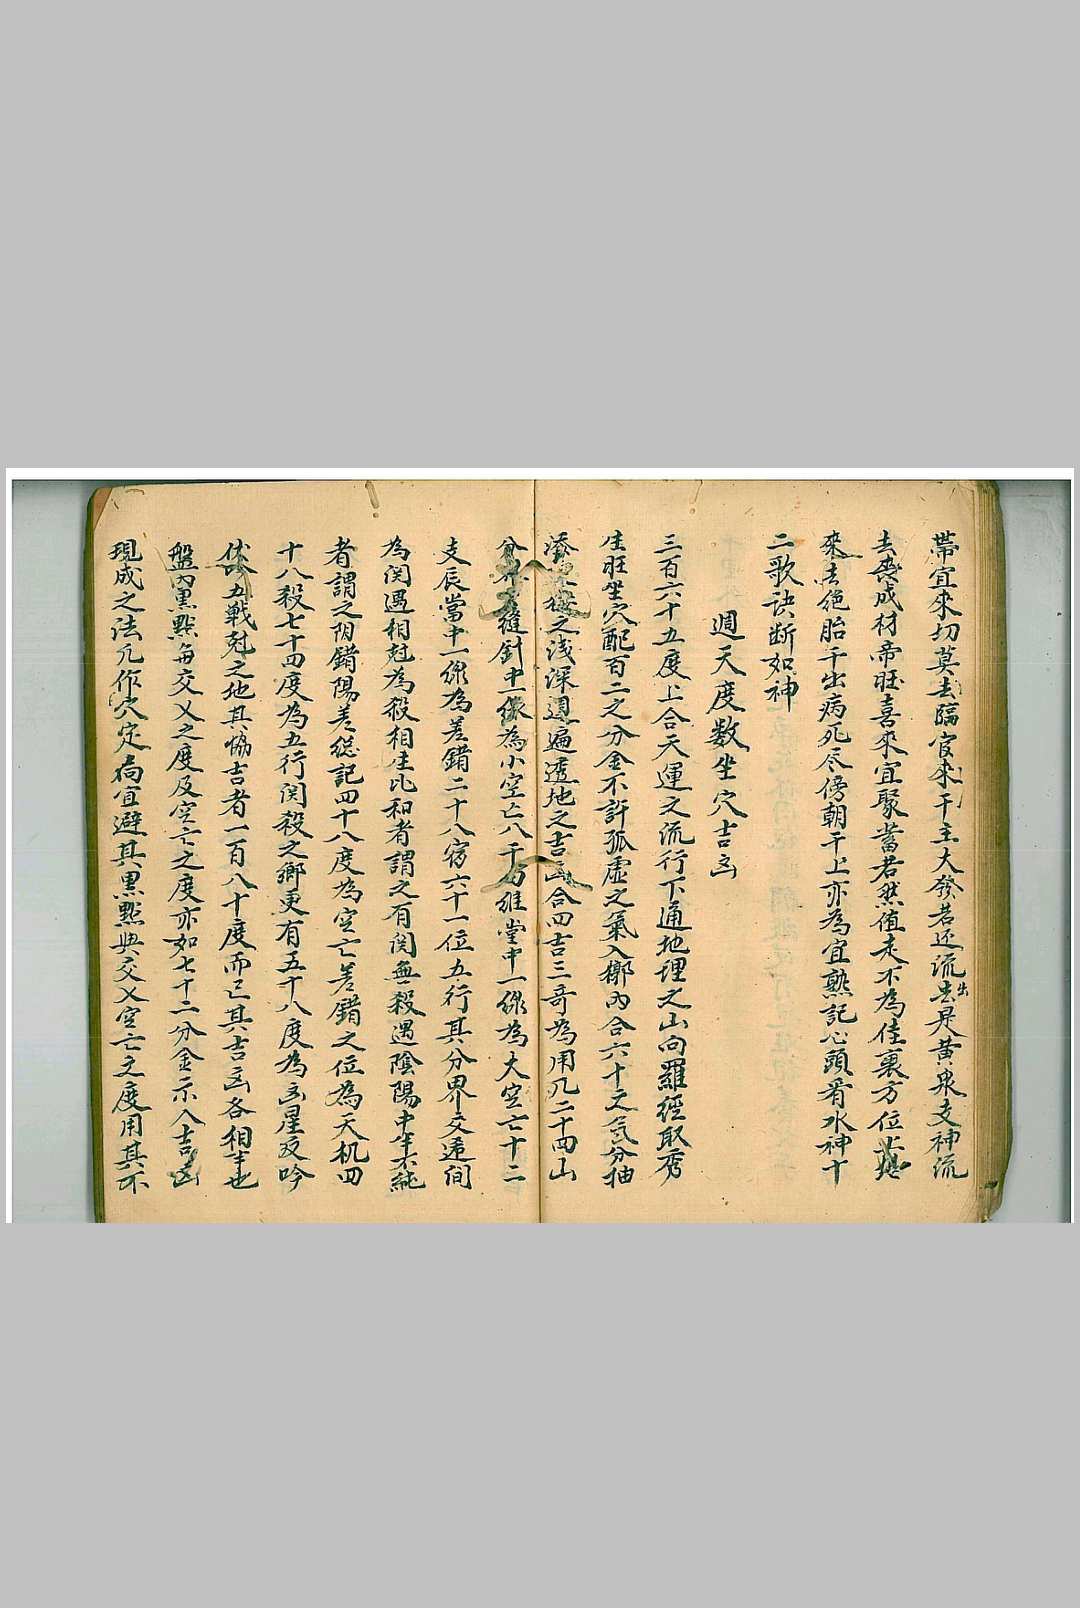 帶宜來切莫去臨官來干主大發若還流去是黄泉支神流
出
去喪成材帝旺喜來宜聚蓄若然值走不為佳裏方位
來去絕胎干出病死尽傍朝干上亦為宜熟記心頭看水神十
二歌诀断如神
週天度数坐穴吉凶
三百六十五度上合天運之流行下通地理之山向羅經取秀
生旺坐穴配百二之分金不許孤虚之氣入槨内合六十之气分抽
添之浅深週遍透地之吉凶合四吉三奇為用凡二十四山
縫針中一線為小空亡八干四維當中一線為大空亡十二
支辰當中一線為差錯二十八宿六十一位五行其分界交透间
為関遇相尅為殺相生比和者謂之有関無殺遇陰陽中半不純
者謂之阴錯陽差総記四十八度為空亡差錯之位為天机四
十八殺七十四度為五行関殺之鄉更有五十八度為凶星反吟
伏吟五戰尅之地其協吉者一百八十度而已其吉凶各相半也
盤内黒點每交乂之度及空亡之度亦如七十二分金示人吉凶
現成之法凡作穴定向宜避其黒點與交乂空亡之度用其不